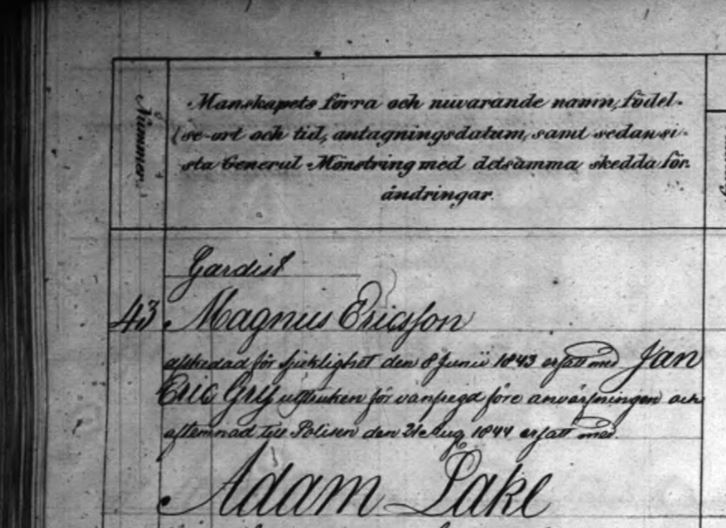 Nummer.
Manskapets förra och nuvarande namn, födel-
se-ort och tid, antagningsdatum, samt sedan si-
sta General-Mönstring med detsamma skedda för-
ändringar.
Gardist
43 Magnus Ericsson
afskedad för sjuklighet den 8 Junii 1843 ersatt med Jan
Eric Gry utstruken för vanfregd före anvärfningen och
aflemnad till Polisen den 21 Aug 1844 ersatt med
Adam Lake